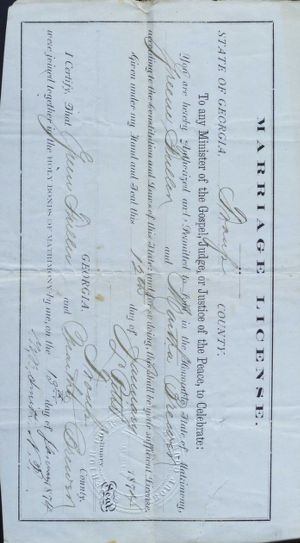 MARRIAGE LICENSE.
STATE OF GEORGIA, Troup COUNTY.
To any Minister of the Gospel, Judge, or Justice of the Peace, to Celebrate:
You are hereby Authorized and Permitted to Join in the Honorable State of Matrimony,
Green and Martha
according to the Constitution and Laws of this State; and for so doing, this shall be your sufficient License.
Given under my Hand and Seal this 12th day of January 1874
Ordinary. Seal
GEORGIA, Troup County.
I Certify, That Green and
were joined together in the HOLY BONDS OF MATRIMONY by me, on the 13th day of January 1874